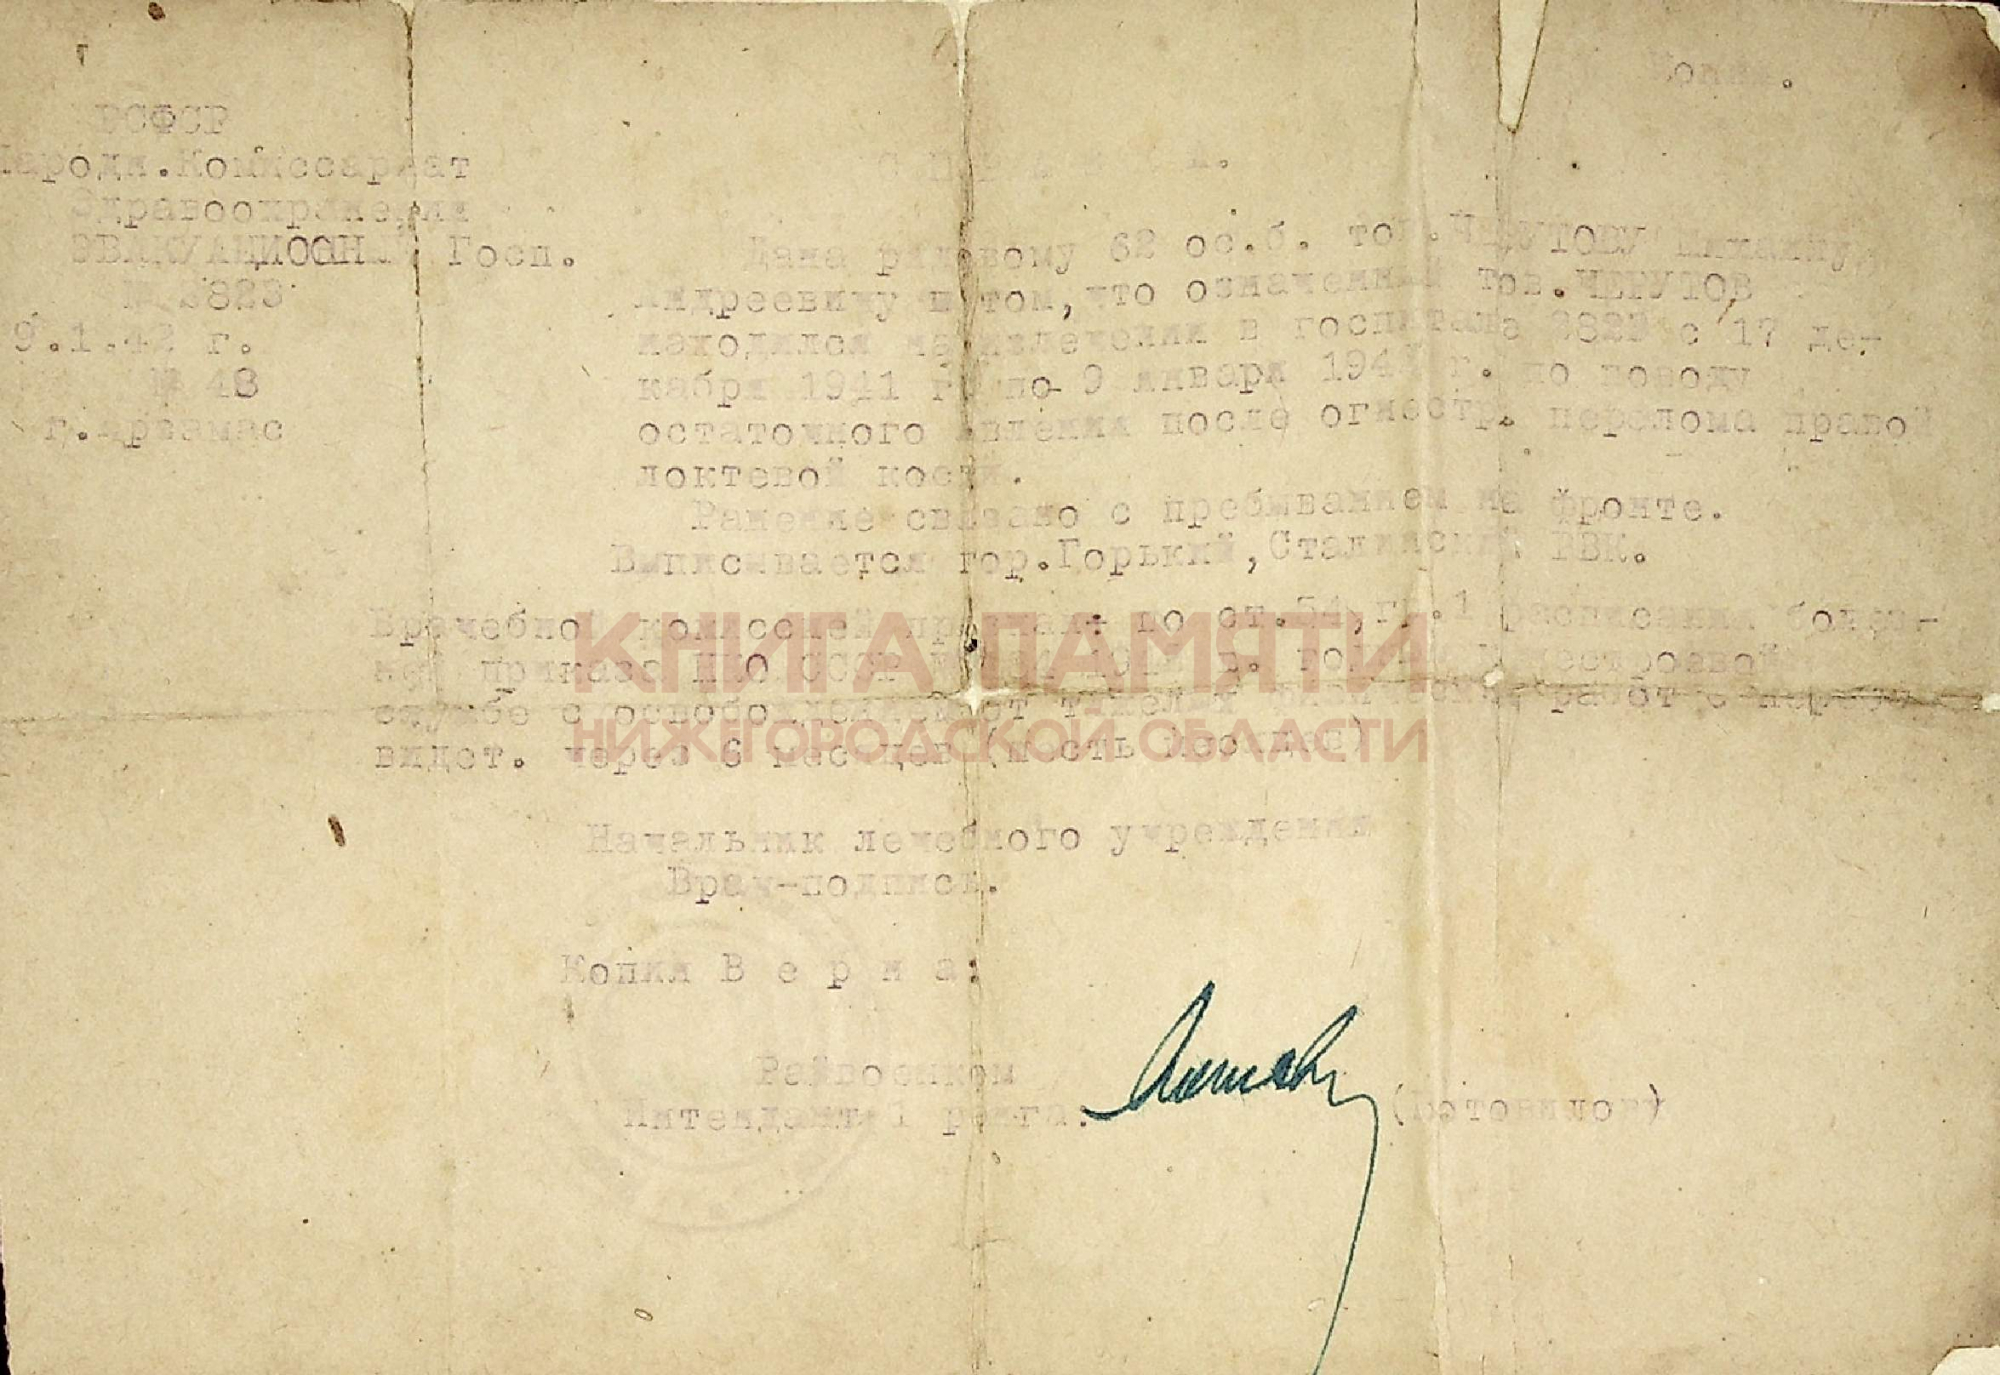 Копия.
РСФСР
Народн.Комиссариат
Здравоохранения
ЭВАКУАЦИОНН Госп.
№ 2823
9.1.42 г.
№ 48
г.Арзамас
С П Р А В К А.
Дана рядовому 62 ос.б. тов.ЧЕРУТОВУ Михаилу
Андреевичу в том,что означенный тов.ЧЕРУТОВ
находился на излечении в госпитале 2823 с 17 де-
кабря 1941 г. по 9 января 1942 г. по поводу
остаточного явления после огнестр. перелома правой
локтевой кости.
Ранение связано с пребыванием на фронте.
Выписывается гор.Горький,Сталинский РВК.
Врачебной комиссией по ст.54,гр.1 расписания болез-
приказа НКО СССР нестроевой
службе с освобождением от тяжелых физических работ с переос
видет. через 6 месяцев (шесть месяцев)
КНИГА ПАМЯТИ
НИЖЕГОРОДСКОЙ ОБЛАСТИ
Начальник лечебного учреждения
Врач-подпись.
Копия В е р н а:
Райвоенком
Интендант 1 ранга: